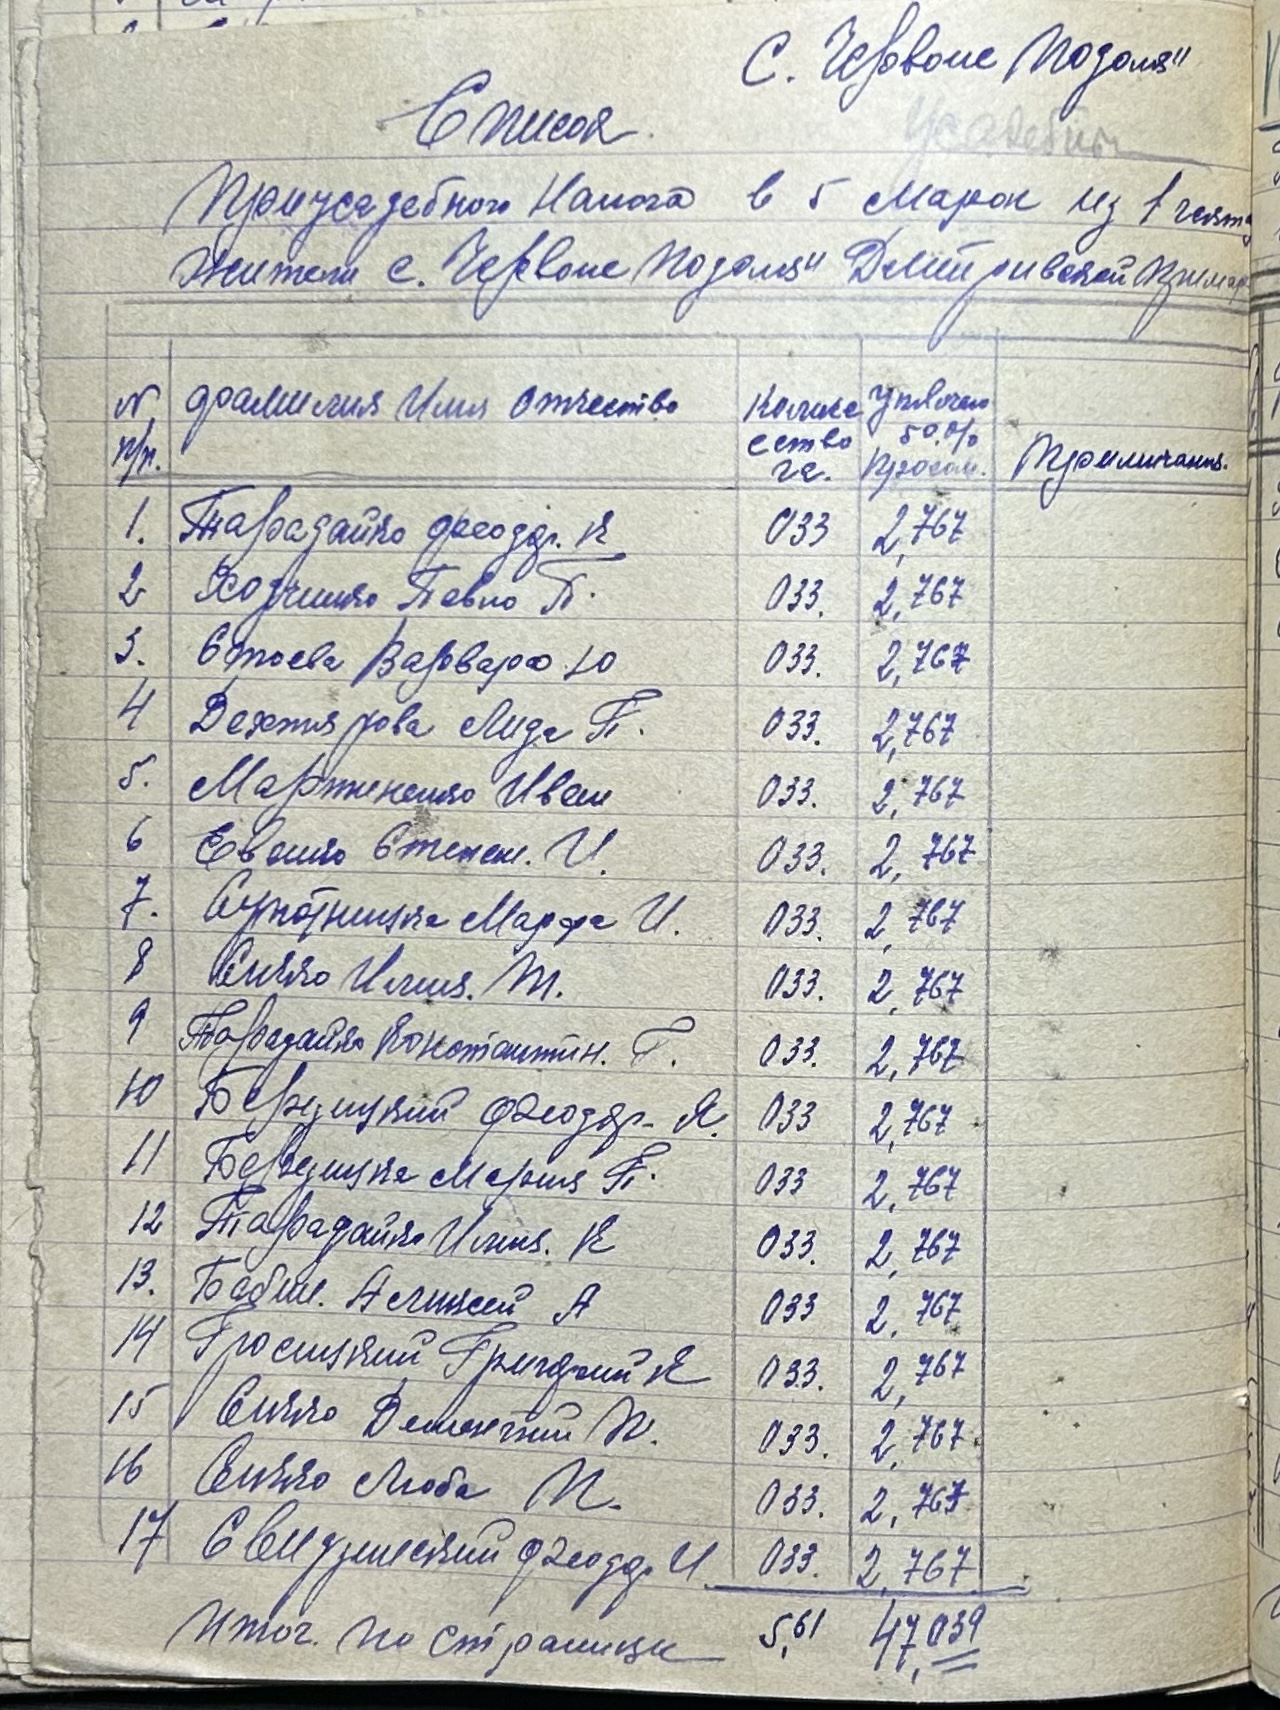 С. Червоне Подоля"
Список
Усадебн
Приусадебного Налога в 5 Марок из 1 
Жители с. Червоне Подоля" Дмитривской Примар
N п/п. Фамилия Имя Отчество Количество га. 50% Примичания.
1. Тарадайко Феодор. К 033 2,767
2 Павло П. 033. 2,767
3. Строева Варвара Ю 033. 2,767
4 Дехтярова Лида П. 033. 2,767
5. Мартиненко Иван 033. 2,767
6 Евашко Степан. И. 033. 2,767
7. Марфа И. 033. 2,767
8 Сичко Илия. Т. 033. 2,767
9 Тарадайко Константин. Г. 033. 2,767
10 Бердицкий Феодор. Я. 033 2,767
11 Бердицка Мария П. 033 2,767
12 Тарадайко Илия. К 033. 2,767
13. Бабин. Аликсей А 033 2,767
14 Гросицкий Григорий К 033. 2,767
15 Сичко 033. 2,767
16 Сичко Люба И. 033. 2,767
17 Свидзинский Феодор И 033. 2,767
Итог. по Страници 5,61 47,039